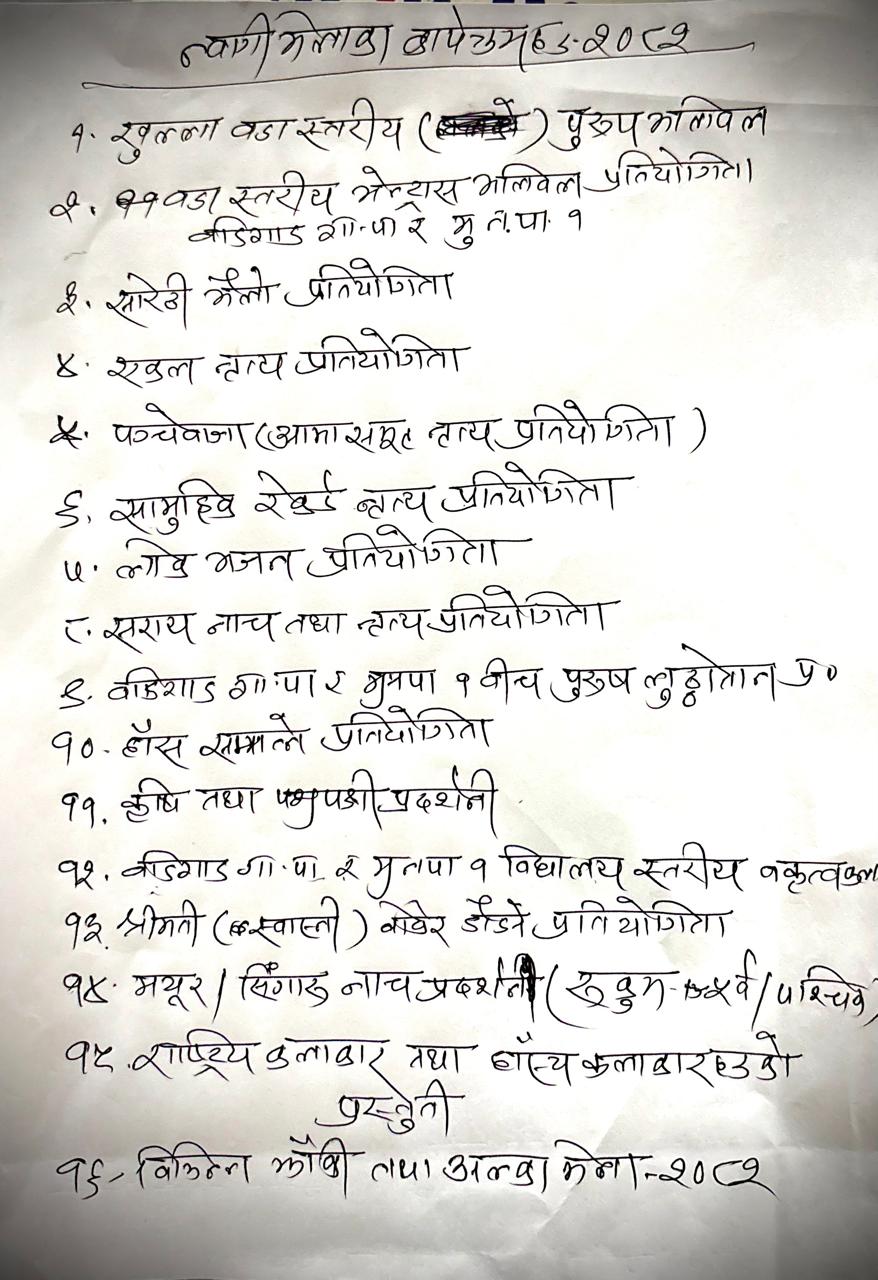 मेलाका कार्यक्रमहरु-२०८२
१. खुल्ला वडा स्तरीय ( ) पुरुष भलिवल
२. ११ वडा स्तरीय भलिवल प्रतियोगिता
वडिगाड गा.पा र मु न.पा. १
३. सोरठी भैलो प्रतियोगिता
४. एकल नृत्य प्रतियोगिता
५. पञ्चेवाजा (आमा समूह नृत्य प्रतियोगिता )
६. सामुहिक रेकर्ड नृत्य प्रतियोगिता
७. लोक भजन प्रतियोगिता
८. सराय नाच तथा नृत्य प्रतियोगिता
९. वडिगाड गा.पा र मुनपा १ वीच पुरुष प्र०
१०. हाँस समात्ने प्रतियोगिता
११. कृषि तथा पशुपंक्षी प्रदर्शनी
१२. वडिगाड गा.पा. र मुनपा १ विद्यालय स्तरीय वकृत्वकला
१३. श्रीमती (स्वास्नी) वोकेर दौडने प्रतियोगिता
१४. मयूर / सिंगारु नाच प्रदर्शनी (रुकुम-पूर्व / पश्चिम)
१५. राष्ट्रिय कलाकार तथा हाँस्य कलाकारहरुको
प्रस्तुती
१६- तथा मेला-२०८२